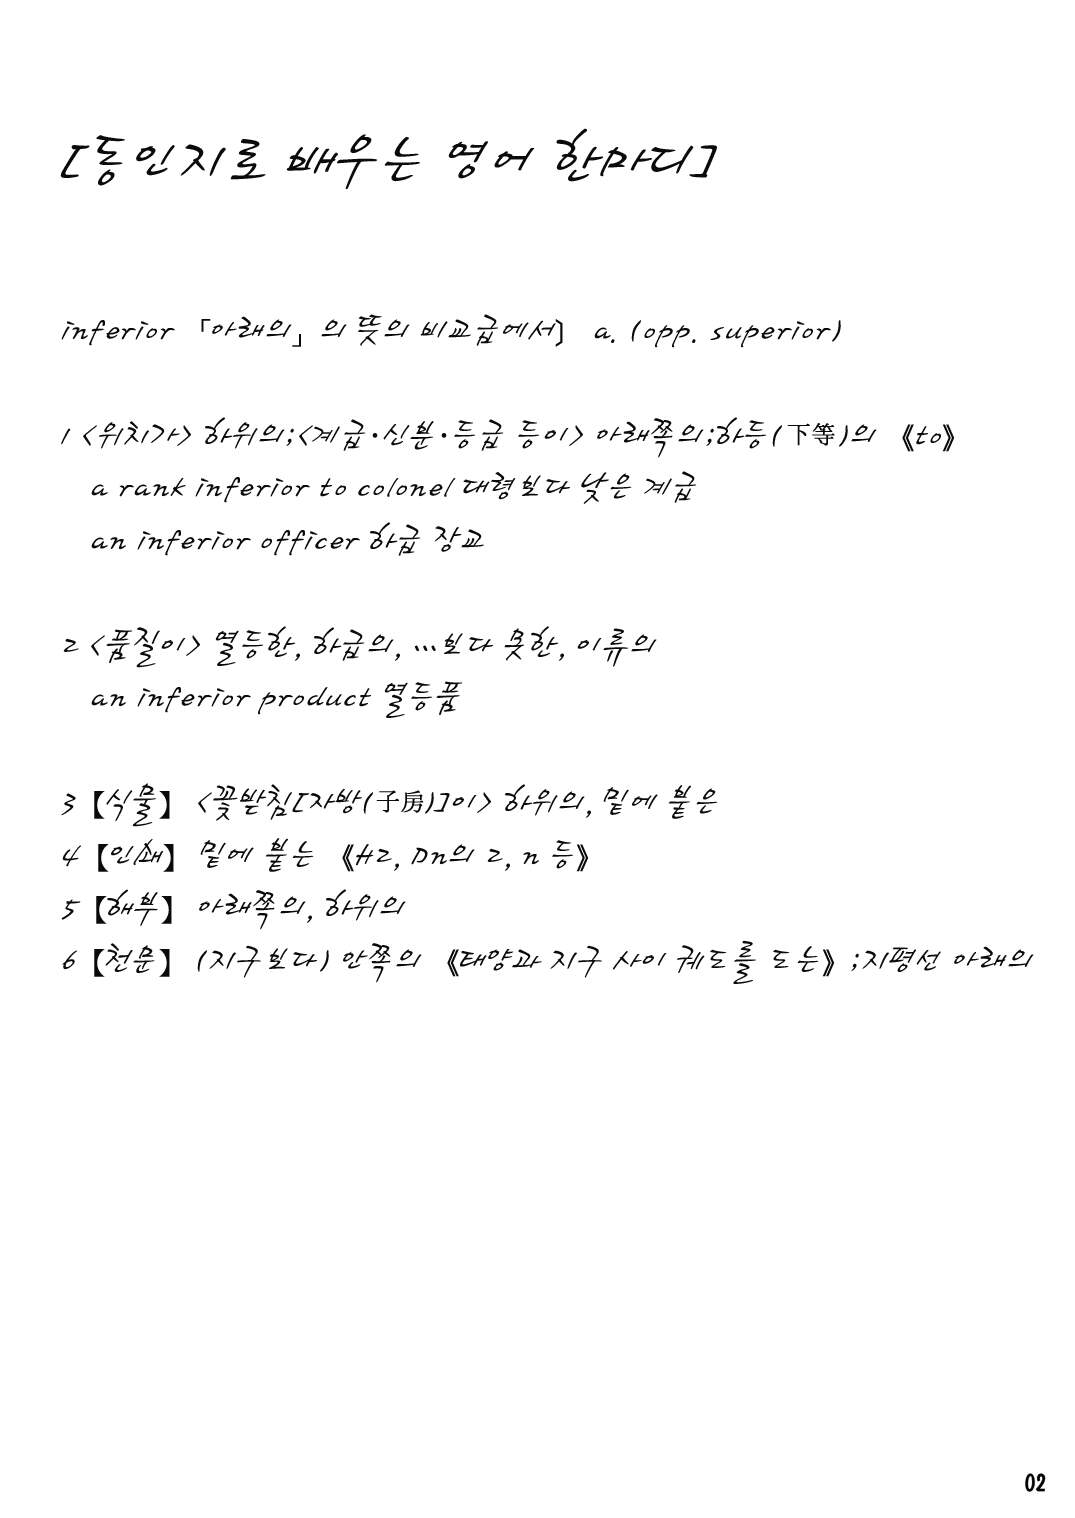 [동인지로 배우는 영어 한마디]
inferior 「아래의」의 뜻의 비교급에서] a. (opp. superior)
1 <위치가> 하위의;<계급·신분·등급 등이> 아래쪽의;하등(下等)의 《to》
a rank inferior to colonel 대령보다 낮은 계급
an inferior officer 하급 장교
2 <품질이> 열등한, 하급의, …보다 못한, 이류의
an inferior product 열등품
3 【식물】 <꽃받침[자방(子房)]이> 하위의, 밑에 붙은
4 【인쇄】 밑에 붙는 《H2, Dn의 2, n 등》
5 【해부】 아래쪽의, 하위의
6 【천문】 (지구보다) 안쪽의 《태양과 지구 사이 궤도를 도는》;지평선 아래의
02